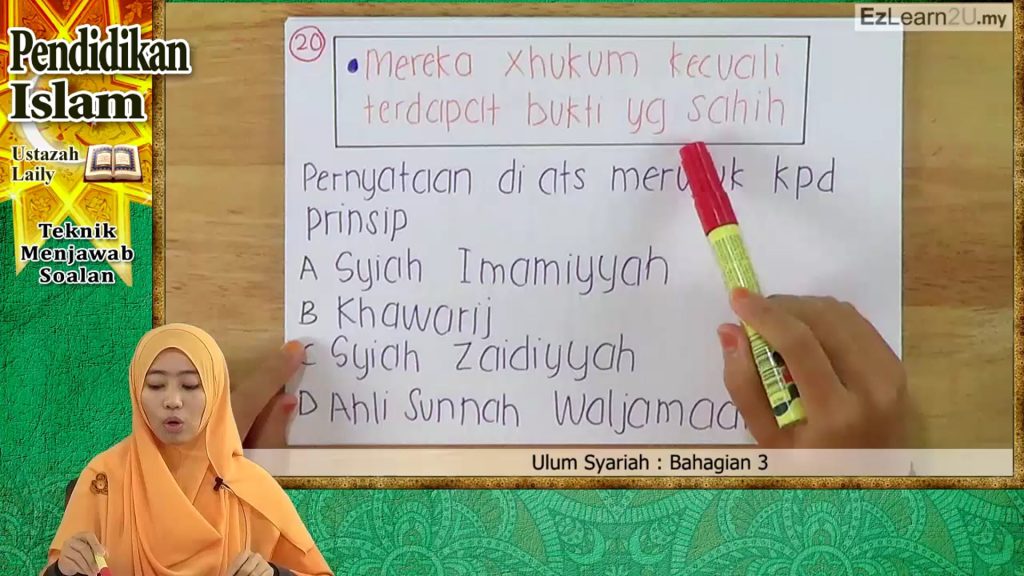 EzLearn2U.my
Pendidikan
Islam
Ustazah
Laily
Teknik
Menjawab
Soalan
20
• Mereka xhukum kecuali
terdapat bukti yg sahih
Pernyataan di ats kpd
prinsip
A Syiah Imamiyyah
B Khawarij
C Syiah Zaidiyyah
D Ahli Sunnah
Ulum Syariah : Bahagian 3